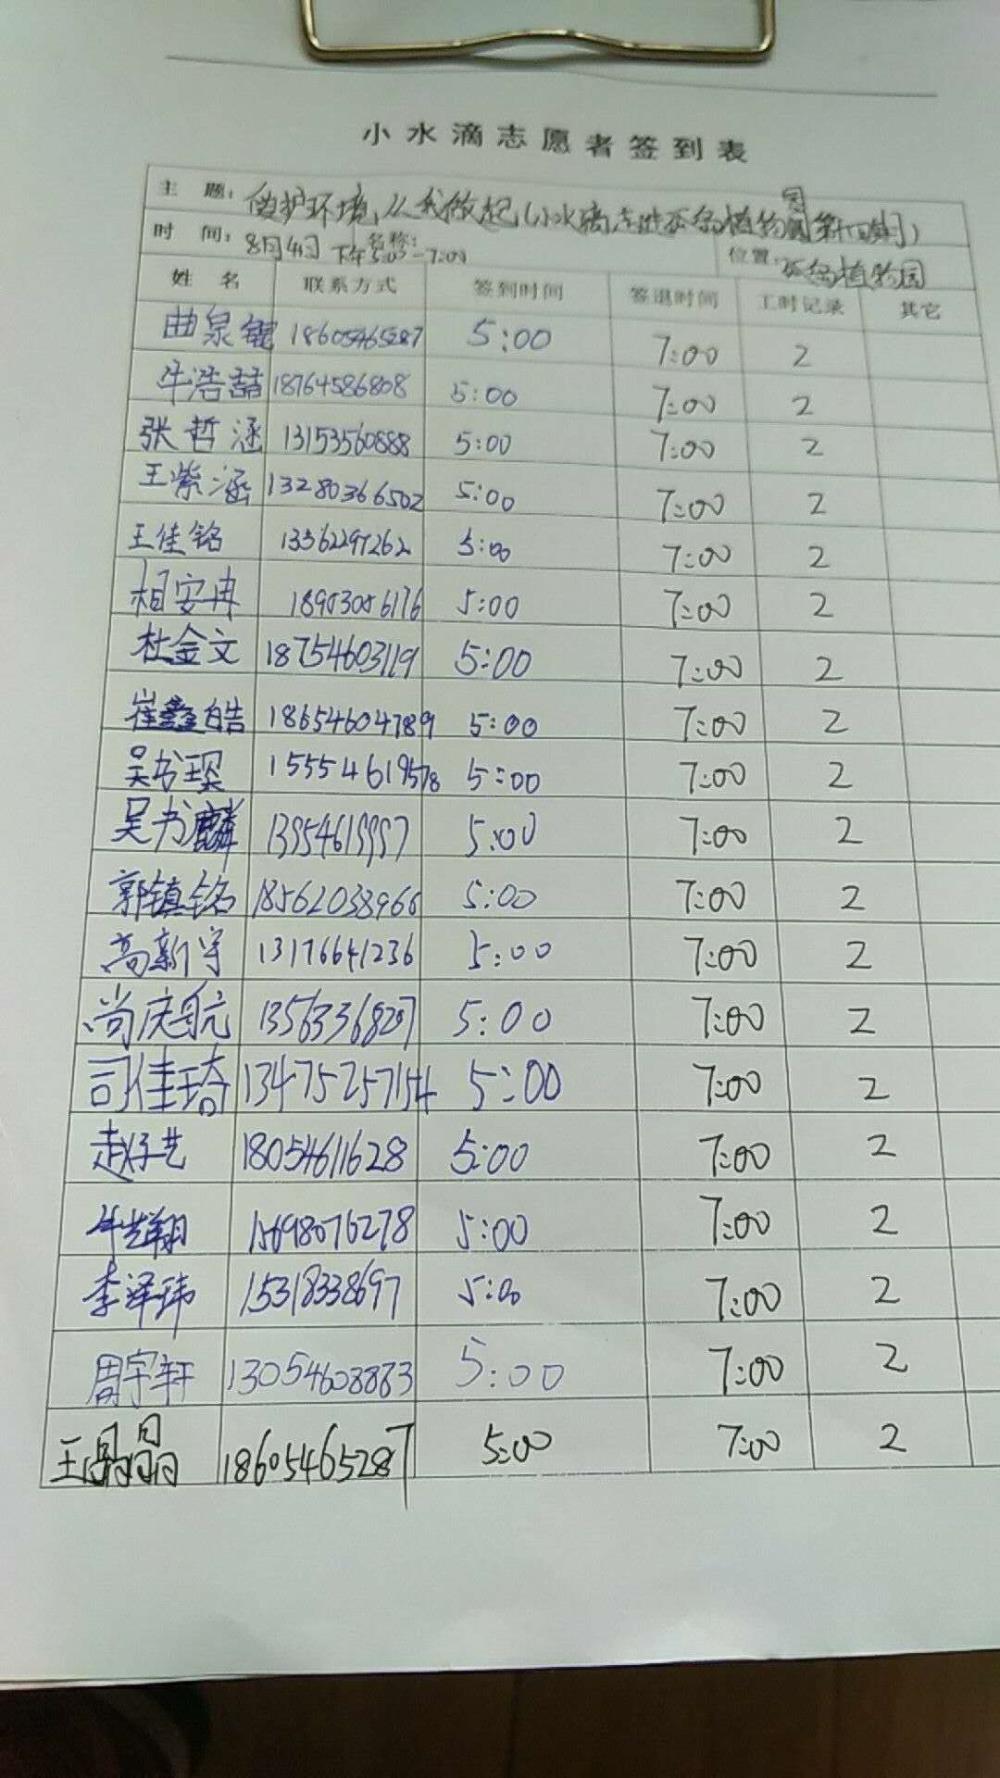 小水滴志愿者签到表
主 题: 保护环境,从我做起(小水滴走进孤岛植物园第十四期)
时 间: 8月4日 下午5:00-7:00 名称: 位置: 孤岛植物园
姓 名 联系方式 签到时间 签退时间 工时记录 其它
曲泉錕 18605465287 5:00 7:00 2
牛浩喆 18764586808 5:00 7:00 2
张哲涵 13153560888 5:00 7:00 2
王紫涵 13280366502 5:00 7:00 2
王佳铭 13562297262 5:00 7:00 2
相安冉 18903086176 5:00 7:00 2
杜金文 18754603119 5:00 7:00 2
崔鑫皓 18654604789 5:00 7:00 2
吴书瑔 15554619578 5:00 7:00 2
吴书麟 13954619997 5:00 7:00 2
郭镇铭 18562038966 5:00 7:00 2
高新宇 13176641236 5:00 7:00 2
尚庆航 13563368207 5:00 7:00 2
司佳琦 13475257154 5:00 7:00 2
赵伃艺 18054611628 5:00 7:00 2
牛翔 15698076278 5:00 7:00 2
李泽玮 15318338697 5:00 7:00 2
周宇轩 13054608883 5:00 7:00 2
王晶晶 18605465287 5:00 7:00 2